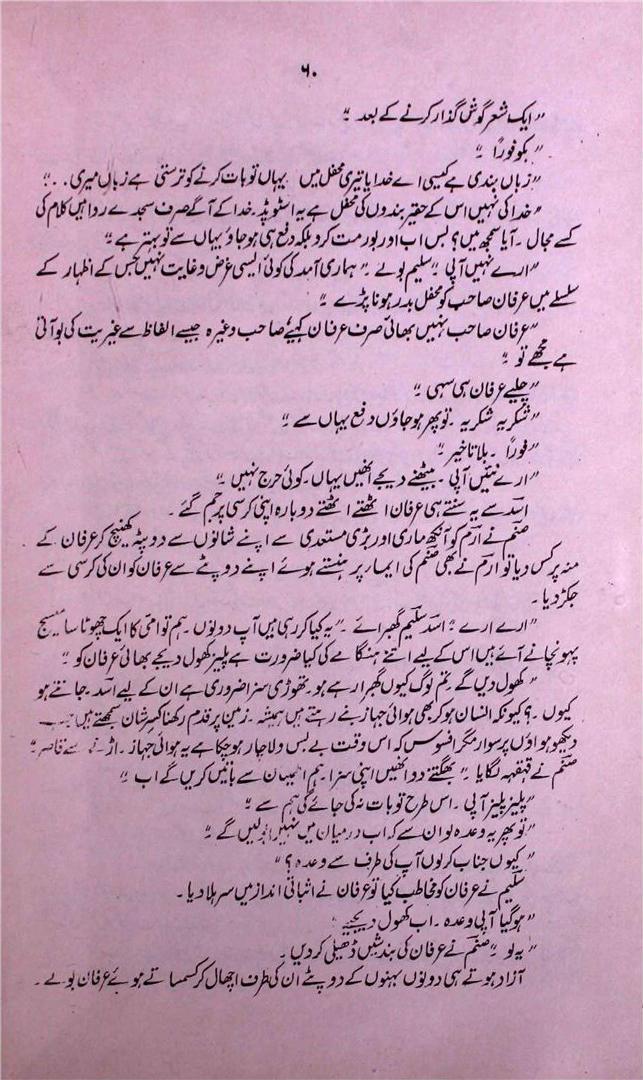 ۶۰
"ایک شعر گوش گذار کرنے کے بعد ۔"
"بکو فوراً ۔"
"زباں بندی ہے کیسی اے خدایا تیری محفل میں یہاں تو بات کرنے کو ترستی ہے زباں میری ..."
"خدا کی نہیں اس کے حقیر بندوں کی محفل ہے یہ اسٹوپڈ ۔ خدا کے آگے صرف سجدے روا ہیں کلام کی
کسے مجال ۔ آیا سمجھ میں؟ بس اب اور بور مت کرو بلکہ دفع ہی ہو جاؤ یہاں سے تو بہتر ہے ۔"
"ارے نہیں آپی ۔" سلیم بولے ۔ "ہماری آمد کی کوئی ایسی غرض و غایت نہیں جس کے اظہار کے
سلسلے میں عرفان صاحب کو محفل بدر ہونا پڑے ۔"
"عرفان صاحب نہیں بھائی صرف عرفان کہیئے صاحب وغیرہ جیسے الفاظ سے غیریت کی بو آتی
ہے مجھے تو ۔"
"چلیے عرفان ہی سہی ۔"
"شکریہ شکریہ ۔ تو پھر ہو جاؤں دفع یہاں سے ۔"
"فوراً ۔ بلا تاخیر ۔"
"ارے نئیں آپی ۔ بیٹھنے دیجے انھیں یہاں ۔ کوئی حرج نہیں ۔"
اسد سے یہ سنتے ہی عرفان اٹھتے اٹھتے دوبارہ اپنی کرسی پر جم گئے ۔
صنم نے ارم کو آنکھ ماری اور بڑی مستعدی سے اپنے شانوں سے دوپٹہ کھینچ کر عرفان کے
منہ پر کس دیا تو ارم نے بھی صنم کی ایماء پر ہنستے ہوئے اپنے دوپٹے سے عرفان کو ان کی کرسی سے
جکڑ دیا ۔
"ارے ارے ؛ اسد سلیم گھبرائے ۔ "یہ کیا کر رہی ہیں آپ دونوں ۔ ہم تو امی کا ایک چھوٹا سا میسج
پہونچانے آئے ہیں اس کے لیے اتنے ہنگامے کی کیا ضرورت ہے پلیز کھول دیجے بھائی عرفان کو ۔"
"کھول دیں گے ۔ تم لوگ کیوں گھبرا رہے ہو ۔ تھوڑی سزا ضروری ہے ان کے لیے اسد ۔ جانتے ہو
کیوں ۔؟ کیونکہ انسان ہو کر بھی ہوائی جہاز بنے رہتے ہیں ہمیشہ ۔ زمین پر قدم رکھنا کسرِ شان سمجھتے ہیں
دیکھو ہواؤں پر سوار مگر افسوس کہ اس وقت بے بس و لاچار ہو چکا ہے یہ ہوائی جہاز ۔ اڑنے سے قاصر ۔"
صنم نے قہقہہ لگایا ۔ "بھگتنے دو انھیں اپنی سزا ۔ ہم اطمینان سے باتیں کریں گے اب ۔"
"پلیز پلیز آپی ۔ اس طرح تو بات نہ کی جائے گی ہم سے ۔"
"تو پھر یہ وعدہ لو ان سے کہ اب درمیان میں نہیں بولیں گے ۔"
"کیوں جناب کرلوں آپ کی طرف سے وعدہ ؟"
سلیم نے عرفان کو مخاطب کیا تو عرفان نے اثباتی انداز میں سر ہلا دیا ۔
"ہو گیا آپی وعدہ ۔ اب کھول دیجیے"
"یہ لو ۔" صنم نے عرفان کی بندشیں ڈھیلی کر دیں ۔
آزاد ہوتے ہی دونوں بہنوں کے دوپٹے ان کی طرف اچھال کر کسمساتے ہوئے عرفان بولے ۔